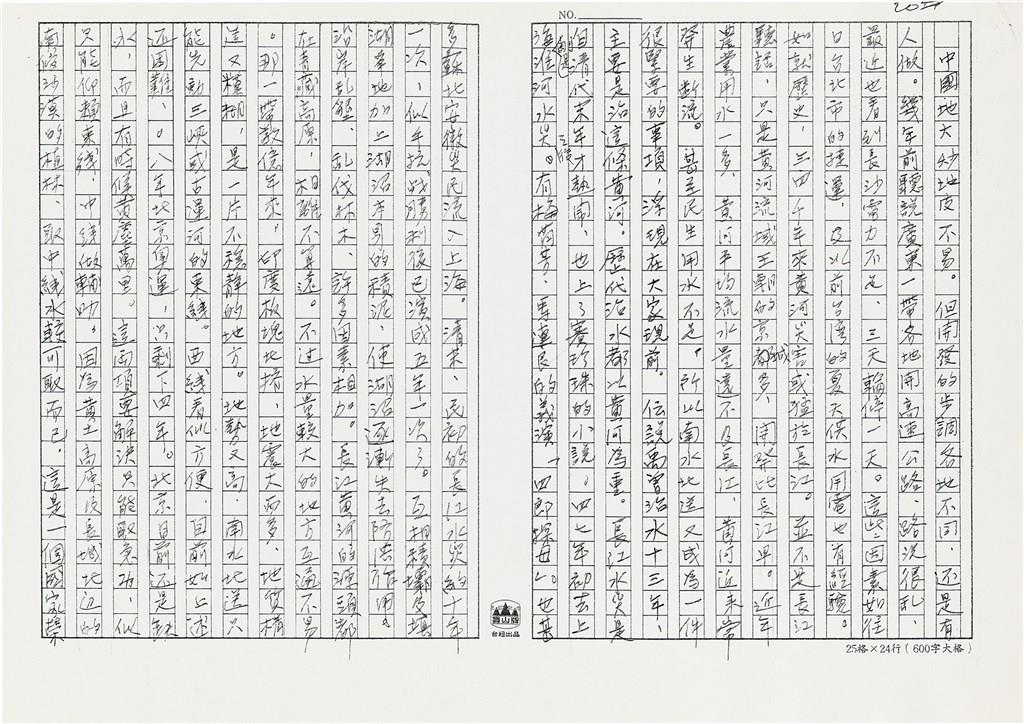 NO.
中國地大炒地皮不易。但開發的步調各地不同，還是有
人做。幾年前聽說廣東一帶各地開高速公路，路況很亂，
最近也看到長沙電力不足，三天輪停一天。這些因素如往
日台北市的捷運，及以前台灣的夏天供水用電也有經驗。
如就歷史，三四千年來黃河災害或猛於長江。並不是長江
聽話，只是黃河流域王朝的京城多，開發比長江早。近年
農業用水一多，黃河平均流水量遠不及長江，黃河近來常
發生斷流。甚至民生用水不足，所以南水北送又成為一件
很緊要的事項，浮現在大家現前。傳說禹曾治水十三年，
主要是治這條黃河。歷代治水都以黃河為重。長江水災是
自清代末年才熱鬧，也上了賽珍珠的小說。四七年初去上
海淮河水災。有梅蘭芳、馬連良的義演「四郎探母」。也甚
多蘇北安徽災民流入上海。清末、民初的長江水災約十年
一次，似乎抗戰勝利後已演成五年一次了。
湖爭地加上湖沼本身的積泥，使湖沼逐漸失去防洪作用。
沿岸乱墾，乱伐林木，許多因素相加。長江黃河的源頭都
在青藏高原，相離不算遠。不過水量較大的地方互通不易
。那一帶數億年來，印度板塊北擠，地震大而多，地質構
造又糢糊，是一片不穩靜的地方。地勢又高，南水北送只
能先動三峽或古運河的東綫。西綫看似方便，目前如上述
還困難。。八年北京奧運，只剩下四年。北京目前還是缺
水，而且有時候黃塵萬里。這兩項要解決只能取急功，似
只能仰賴東綫，中綫做輔助。因為黃土高原及長城北边的
南段沙漠的植林，取中綫水較可取而已。這是一個國家榮
台紐出品
25格×24行（600字大格）